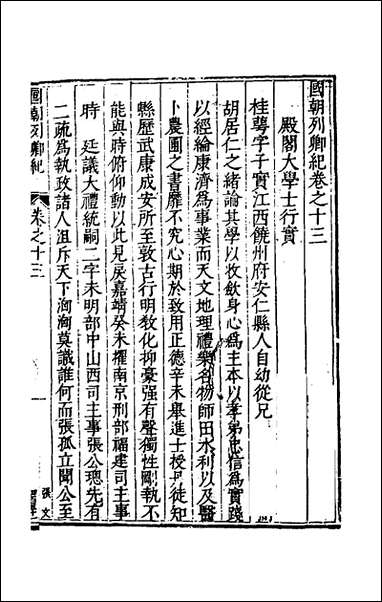 國朝列卿紀卷之十三
殿閣大學士行實
桂蕚字子實江西饒州府安仁縣人自幼從兄
胡居仁之緒論其學以收斂身心爲主本以孝弟忠信爲實踐
以經綸康濟爲事業而天文地理禮樂名物師田水利以及醫
卜農圃之書靡不究心期於致用正德辛未舉進士授丹徒知
縣歷武康成安所至敦古行明敎化抑豪强有聲獨性剛執不
能與時俯仰動以此見戾嘉靖癸未擢南京刑部福建司主事
時 廷議大禮統嗣二字未明部中山西司主事張公璁先有
二疏爲執政諸人沮斥天下洶洶莫識誰何而張孤立聞公至
國朝列卿紀
卷之十三
張文